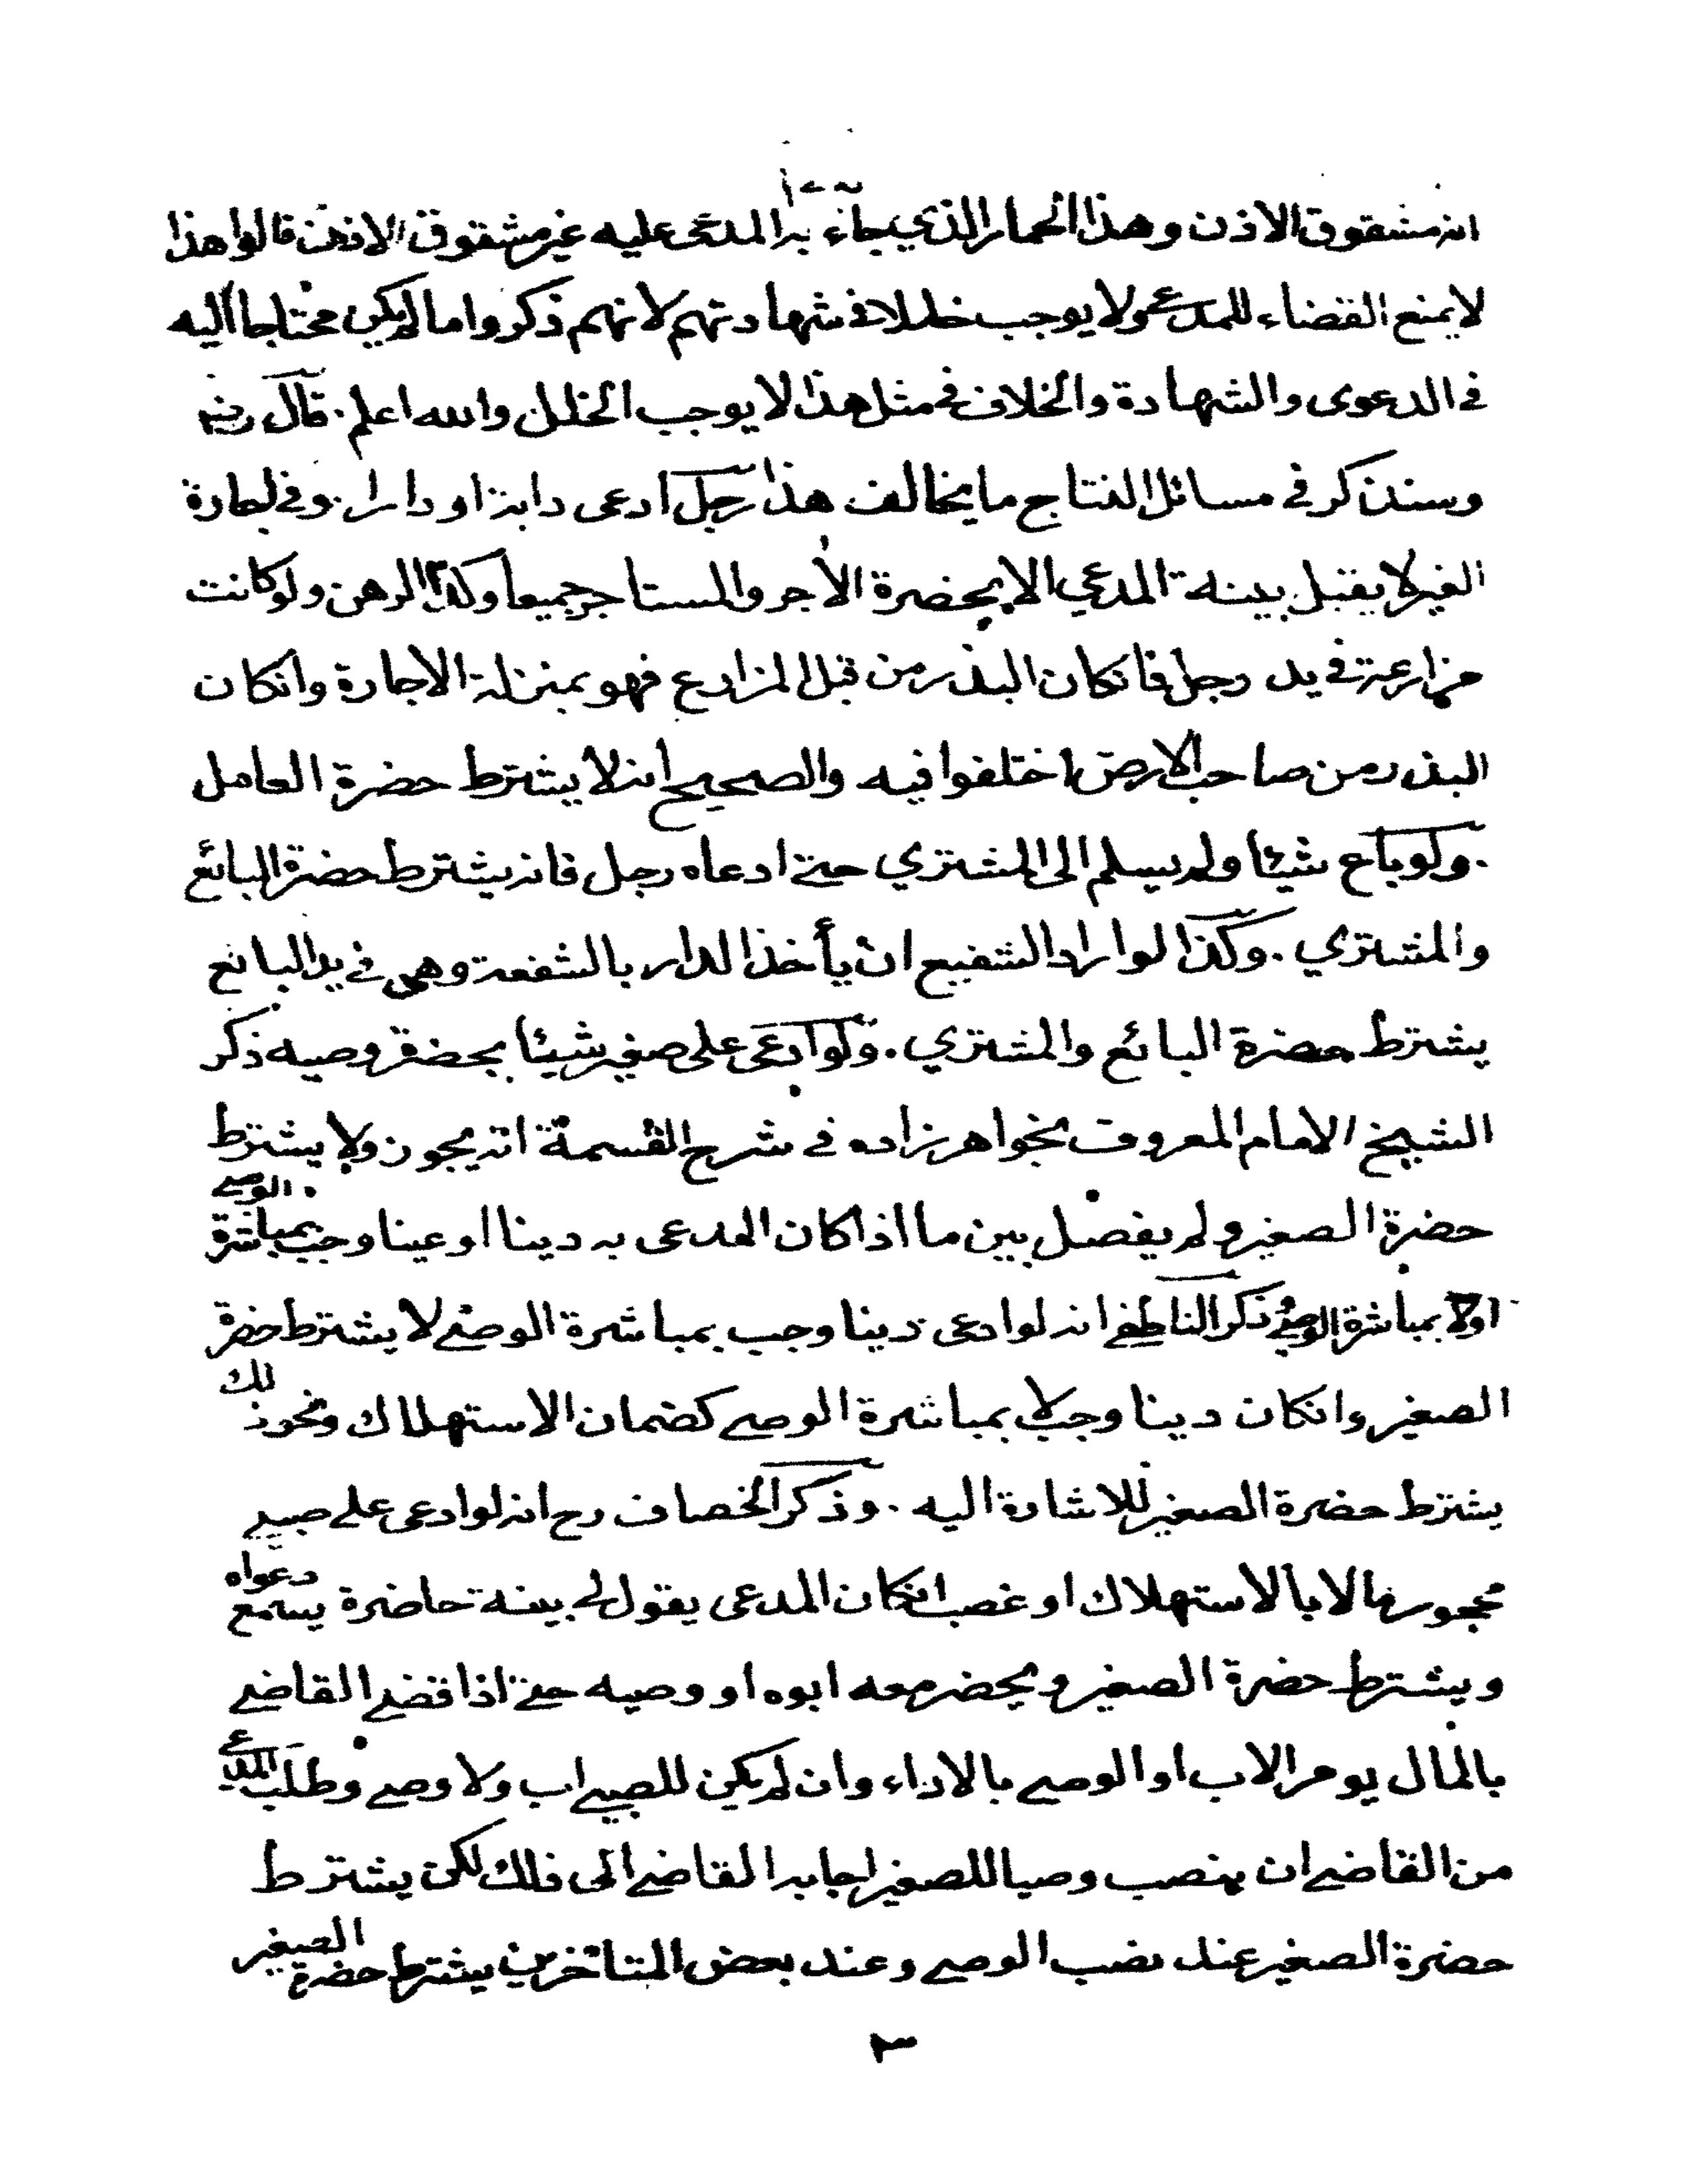 انه مشقوق الاذن وهذا الحمار الذي جاء به المدعى عليه غير مشقوق الاذن قالوا هذا
لا يمنع القضاء للمدعى ولا يوجب خللا في شهادتهم لانهم ذكروا ما لم يكن محتاجا اليه
في الدعوى والشهادة والخلاف في مثل هذا لا يوجب الخلل والله اعلم . قال رضه
وسنذكر في مسائل النتاج ما يخالف هذا رجل ادعى دابة او دارا . وفي اجارة
الغير لا يقبل بينة المدعي الا بحضرة الآجر والمستاجر جميعا وكذا الرهن ولو كانت
مزارعة في يد رجل فانكان البذر من قبل المزارع فهو بمنزلة الاجارة وانكان
البذر من صاحب الارض اختلفوا فيه والصحيح انه لا يشترط حضرة العامل
. ولو باع شيئا ولم يسلم الى المشتري حتى ادعاه رجل فانه يشترط حضرة البائع
والمشتري . وكذا لو اراد الشفيع ان يأخذ الدار بالشفعة وهى في يد البائع
يشترط حضرة البائع والمشتري . ولو ادعى على صغير شيئا بحضرة وصيه ذكر
الشيخ الامام المعروف بخواهرزاده في شرح القسمة انه يجوز ولا يشترط
حضرة الصغير ولم يفصل بين ما اذا كان المدعى به دينا او عينا وجب بمباشرة الوصي
اولا بمباشرة الوصي ذكر الناطفي انه لو ادعى دينا وجب بمباشرة الوصي لا يشترط حضرة
الصغير وانكان دينا وجب لا بمباشرة الوصي كضمان الاستهلاك ونحو ذلك
يشترط حضرة الصغير للاشارة اليه . وذكر الخصاف رح انه لو ادعى على صبي
محجور مالا بالاستهلاك او غصب انكان المدعى يقول لي بينة حاضرة يسمع دعواه
ويشترط حضرة الصغير ويحضر معه ابوه او وصيه حتى اذا قضى القاضي
بالمال يومر الاب او الوصي بالاداء وان لم يكن للصبي اب ولا وصي وطلب المدعي
من القاضي ان ينصب وصيا للصغير اجابه القاضي الى ذلك لكن يشترط
حضرة الصغير عند نصب الوصي وعند بعض المتاخرين يشترط حضرة الصغير